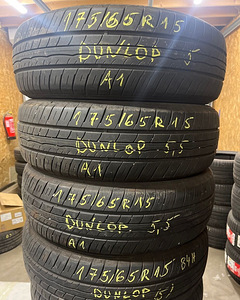 175/65R15
DUNLOP 5
A1
175/65R15
DUNLOP 5,5
A1
175/65R15
DUNLOP 5,5
A1
175/65R15 84H
DUNLOP